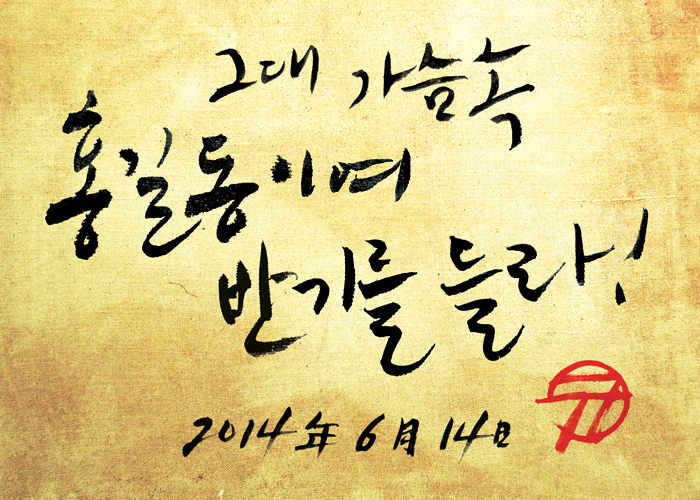 그대 가슴속
홍길동이여
반기를 들라!
2014年 6月 14日